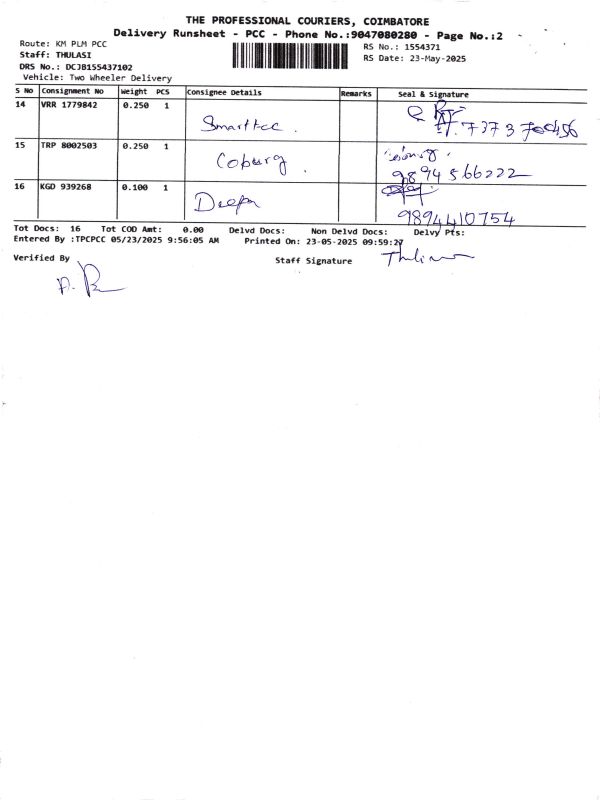 THE PROFESSIONAL COURIERS, COIMBATORE
Delivery Runsheet - PCC - Phone No.:9047080280 - Page No.:2
Route: KM PLM PCC
RS No.: 1554371
Staff: THULASI
RS Date: 23-May-2025
DRS No.: DCJB155437102
Vehicle: Two Wheeler Delivery
S No Consignment No Weight PCS Consignee Details Remarks Seal & Signature
14 VRR 1779842 0.250 1
15 TRP 8002503 0.250 1 Coburg
9894566222
16 KGD 939268 0.100 1 Deepa
9894410754
Tot Docs: 16 Tot COD Amt: 0.00 Delvd Docs: Non Delvd Docs: Delvy Pts:
Entered By :TPCPCC 05/23/2025 9:56:05 AM Printed On: 23-05-2025 09:59:27
Verified By
Staff Signature